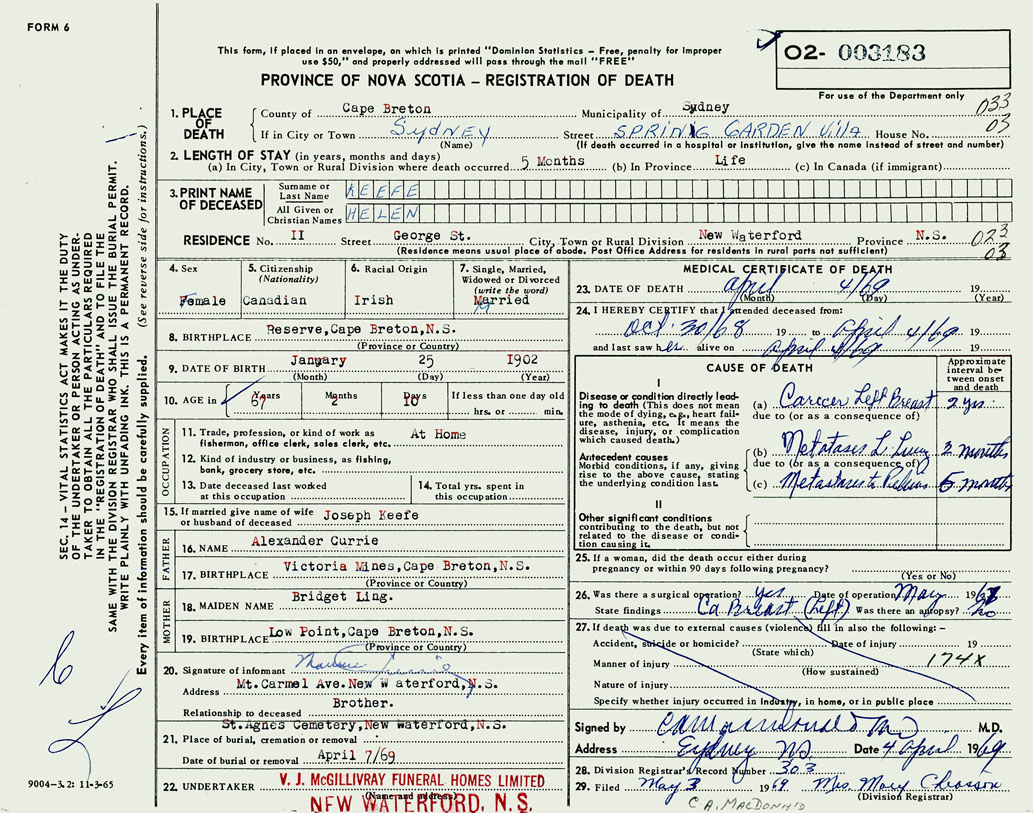 FORM 6
This form, if placed in an envelope, on which is printed "Dominion Statistics – Free, penalty for improper
use $50," and properly addressed will pass through the mail "FREE"
PROVINCE OF NOVA SCOTIA – REGISTRATION OF DEATH
02- 003183
For use of the Department only
033
03
1. PLACE OF DEATH { County of Cape Breton Municipality of Sydney
If in City or Town SYDNEY Street SPRING GARDEN Villa House No.
(Name) (If death occurred in a hospital or institution, give the name instead of street and number)
2. LENGTH OF STAY (in years, months and days)
(a) In City, Town or Rural Division where death occurred 5 Months (b) In Province Life (c) In Canada (if immigrant)
3. PRINT NAME OF DECEASED { Surname or Last Name KEEFE
All Given or Christian Names HELEN
RESIDENCE No. II Street George St. City, Town or Rural Division New Waterford Province N.S. 023
(Residence means usual place of abode. Post Office Address for residents in rural parts not sufficient) 03
4. Sex Female
5. Citizenship (Nationality) Canadian
6. Racial Origin Irish
7. Single, Married, Widowed or Divorced (write the word) Married
M
8. BIRTHPLACE Reserve,Cape Breton,N.S.
(Province or Country)
9. DATE OF BIRTH January 25 1902
(Month) (Day) (Year)
10. AGE in Years 67 Months 2 Days 10 If less than one day old
hrs. or min.
OCCUPATION
11. Trade, profession or kind of work as
fisherman, office clerk, sales clerk, etc. At Home
12. Kind of industry or business, as fishing,
bank, grocery store, etc.
13. Date deceased last worked
at this occupation
14. Total yrs. spent in
this occupation
15. If married give name of wife
or husband of deceased Joseph Keefe
FATHER
16. NAME Alexander Currie
17. BIRTHPLACE Victoria Mines,Cape Breton,N.S.
(Province or Country)
MOTHER
18. MAIDEN NAME Bridget Ling.
19. BIRTHPLACE Low Point,Cape Breton,N.S.
(Province or Country)
20. Signature of informant
Address Mt.Carmel Ave.New Waterford,N.S.
Relationship to deceased Brother.
St.Agnes Cemetery,New Waterford,N.S.
21. Place of burial, cremation or removal
Date of burial or removal April 7/69
22. UNDERTAKER V. J. McGILLIVRAY FUNERAL HOMES LIMITED
(Name and address)
NEW WATERFORD, N. S.
MEDICAL CERTIFICATE OF DEATH
23. DATE OF DEATH April 4/69 19
(Month) (Day) (Year)
24. I HEREBY CERTIFY that I attended deceased from:
Oct. 30/68 19 to April 4/69 19
and last saw her alive on April 4/69 19
CAUSE OF DEATH
Approximate interval between onset and death
I
Disease or condition directly leading to death (This does not mean the mode of dying, e.g., heart failure, asthenia, etc. It means the disease, injury, or complication which caused death.)
(a) Cancer Left Breast 2 yrs.
due to (or as a consequence of)
Antecedent causes
Morbid conditions, if any, giving rise to the above cause, stating the underlying condition last.
(b) Metatases L. Lung 2 months
due to (or as a consequence of)
(c) Metastases to Pelvis 5 months
II
Other significant conditions
contributing to the death, but not related to the disease or condition causing it.
25. If a woman, did the death occur either during
pregnancy or within 90 days following pregnancy?
(Yes or No)
26. Was there a surgical operation? yes Date of operation May 1967
State findings Ca Breast (Left) Was there an autopsy? No
27. If death was due to external causes (violence) fill in also the following: –
Accident, suicide or homicide? Date of injury 19
(State which)
Manner of injury 174X
(How sustained)
Nature of injury
Specify whether injury occurred in industry, in home, or in public place
Signed by C A MacDonald M.D.
Address Sydney NS. Date 4 April 1969
28. Division Registrar's Record Number 303
29. Filed May 3 1969 Mrs. Mary Chiasson
(Division Registrar)
C A. MACDONALD
SEC. 14 – VITAL STATISTICS ACT MAKES IT THE DUTY
OF THE UNDERTAKER OR PERSON ACTING AS UNDER-
TAKER TO OBTAIN ALL THE PARTICULARS REQUIRED
IN THE "REGISTRATION OF DEATH" AND TO FILE THE
SAME WITH THE DIVISION REGISTRAR WHO SHALL ISSUE THE BURIAL PERMIT.
WRITE PLAINLY WITH UNFADING INK. THIS IS A PERMANENT RECORD.
Every item of information should be carefully supplied. (See reverse side for instructions.)
9004–3.2: 11-3-65